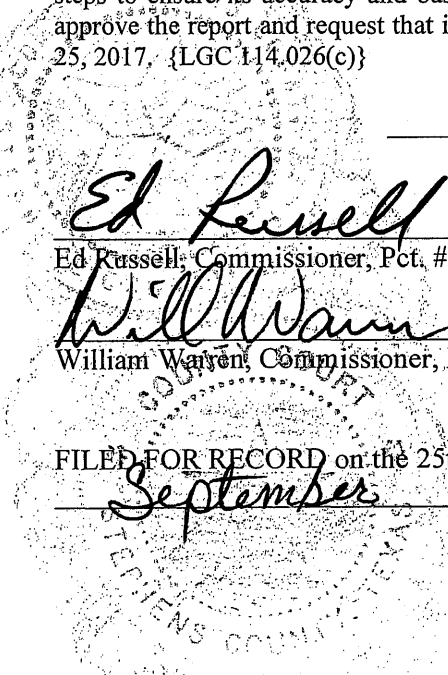 steps to ensure its accuracy and
approve the report and request that
25, 2017. {LGC 114.026(c)}
Ed Russell
Ed Russell, Commissioner, Pct. #
Will Warren
William Warren, Commissioner,
COUNTY COURT
FILED FOR RECORD on the 25
September
STEPHENS COUNTY, TEXAS